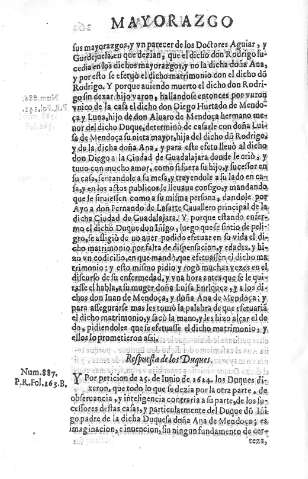 MAYORAZGO
sus mayorazgos, y vn parecer de los Doctores Aguiar, y
Gurdejuela, en que dezian, que el dicho don Rodrigo su-
cedia en los dichos mayorazgos, y no la dicha doña Ana,
y por esto se efetuò el dicho matrimonio con el dicho dõ
Rodrigo. Y porque auiendo muerto el dicho don Rodri-
go sin dexar hijo varon, hallandose entonces por varon
vnico de la casa el dicho don Diego Hurtado de Mendo-
ça y Luna, hijo de don Aluaro de Mendoça hermano me
nor del dicho Duque, determinò de casarle con doña Luï
sa de Mendoça su nieta mayor, hija del dicho dõ Rodrigo
y de la dicha doña Ana, y para este efeto lleuò al dicho
don Diego a la Ciudad de Guadalajara donde le criò, y
tuuo con mucho amor, como si fuera su hijo, y sucessor en
su casa, sentandole a su mesa, y trayendole a su lado en ca-
sa, y en los actos publicos se lleuaua consigo, y mandando
que le siruiessen como a su misma persona, dandole por
Ayo a don Fernando de Lasarte Cauallero principal de la
dicha Ciudad de Guadalajara. Y porque estando enfer-
mo el dicho Duque don Iñigo, luego que se sintio de peli-
gro, se afligiò de no auer podido efetuar en su vida el di-
cho matrimonio por falta de dispensacion, y edades, y hi-
zo vn codicilio, en que mandò, que efetuassen el dicho ma
trimonio: y esto mismo pidio y rogò muchas vezes en el
discurso de su enfermedad, y vna hora antes que se le qui-
tasse el habla, a su muger doña Luisa Enriquez, y a los di-
chos don Iuan de Mendoça, y doña Ana de Mendoça: y
para assegurarse mas les tomò la palabra de que efetuaria
el dicho matrimonio, y asiò la mano, y les hizo alçar el de
do, pidiendoles que se efetuasse el dicho matrimonio; y
ellos lo prometieron assi.
Respuesta de los Duques.
Num. 887.
P.R. Fol. 163. B.
Y Por peticion de 25. de Iunio de 1624. los Duques di-
xeron, que todo lo que se dezia por la otra parte, de
obseruancia, y inteligencia contraria a su parte, de los su-
cessores destas casas, y particularmente del Duque dõ Iñi
go padre de la dicha Duquesa doña Ana de Mendoça; es
imaginacion, e inuencion, sin ningun fundamento de cer-
teza,